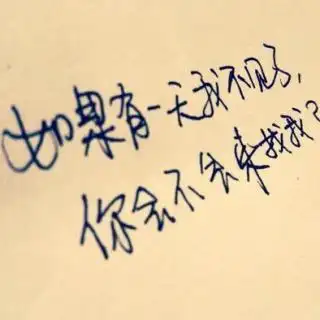 如果有一天我不见了,
你会不会来找我?